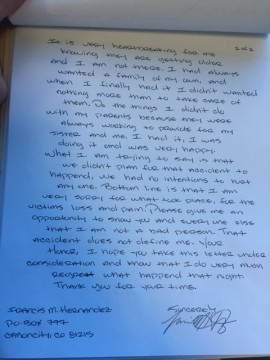 2 of 2
It is very heartbreaking for me
knowing they are getting older
and I am not there. I had always
wanted a family of my own, and
when I finally had it I didn't wanted
nothing more than to take care of
them. Do the things I didn't do
with my parents because they were
always working to provide for my
sister and me. I had it, I was
doing it and was very happy.
What I am trying to say is that
we didn't plan for that accident to
happend, we had no intentions to hurt
any one. Bottom line is that I am
very sorry for what took place, for the
victims loss and pain. Please give me an
opportunity to show you and every one else
that I am not a bad person. That
accident does not define me. Your
Honor, I hope you take this letter under
consideration and know that I do very much
regret what happend that night.
Thank you for your time.
Francis M. Hernandez
PO. BOX 777
Canon City, CO 81215
Sincerely